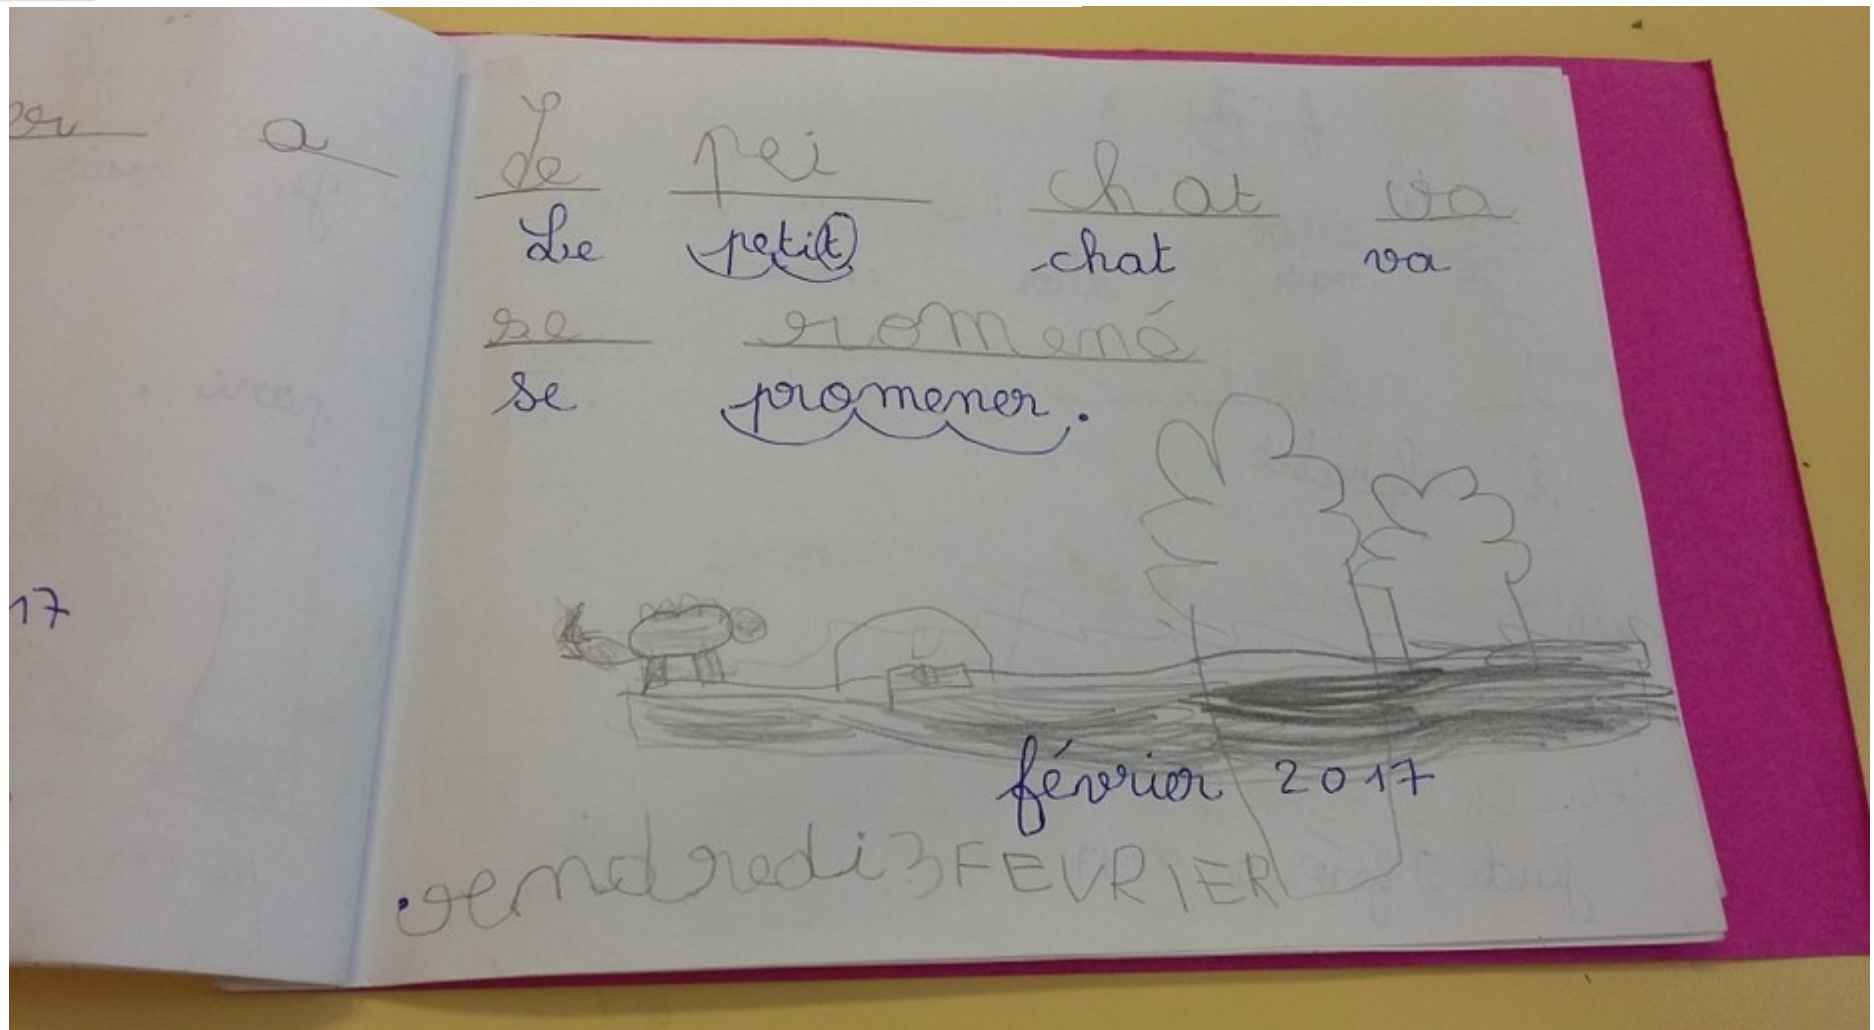 er a
17
Le pei chat va
Le petit chat va
se romené
se promener.
février 2017
vendredi 3 FEVRIER